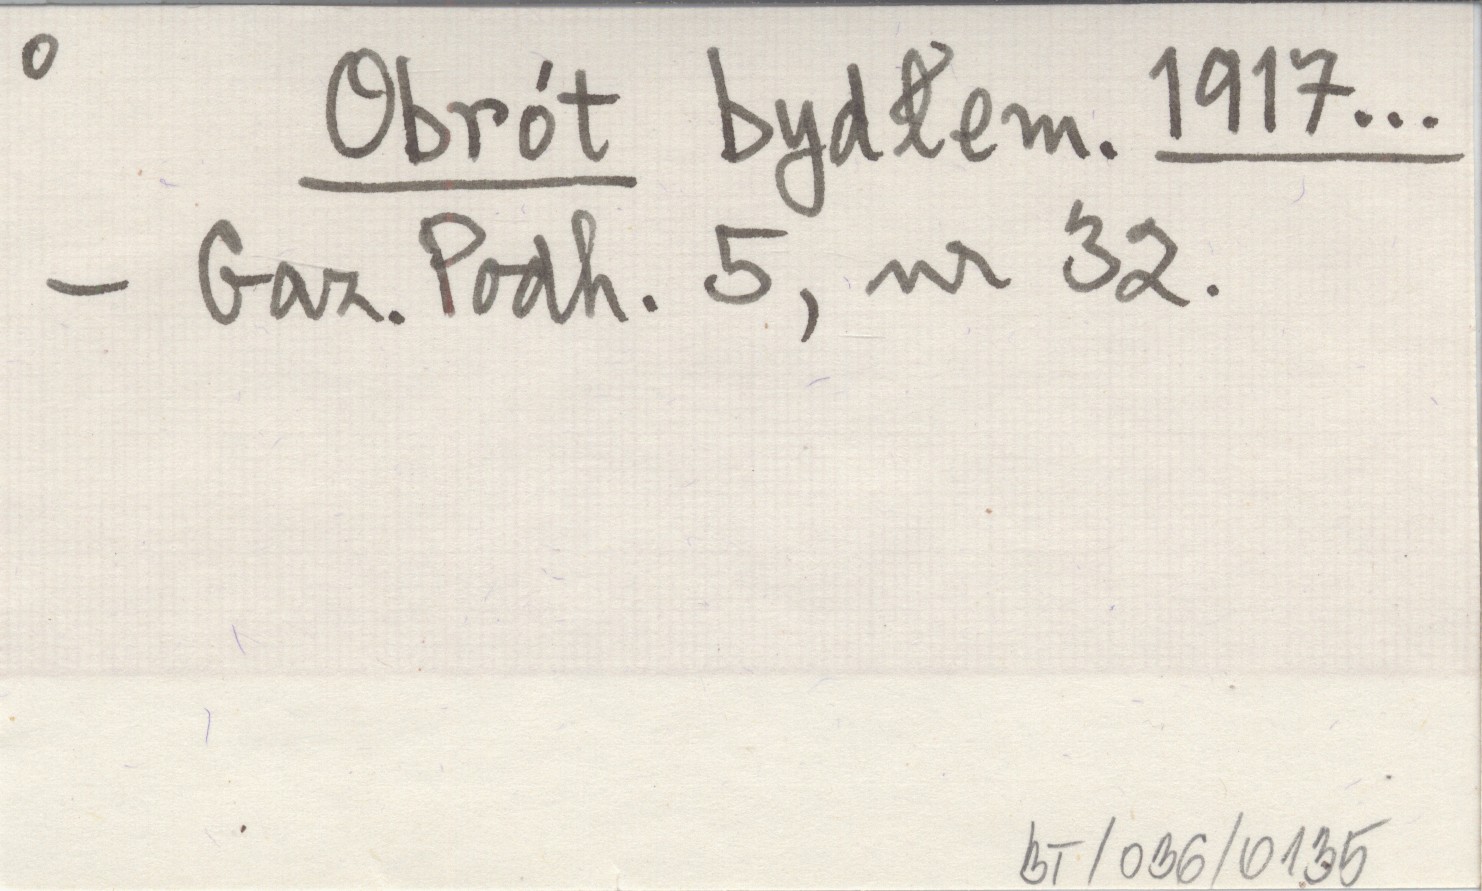 o
Obrót bydłem. 1917...
- Gaz. Podh. 5, nr 32.
BT/036/0135